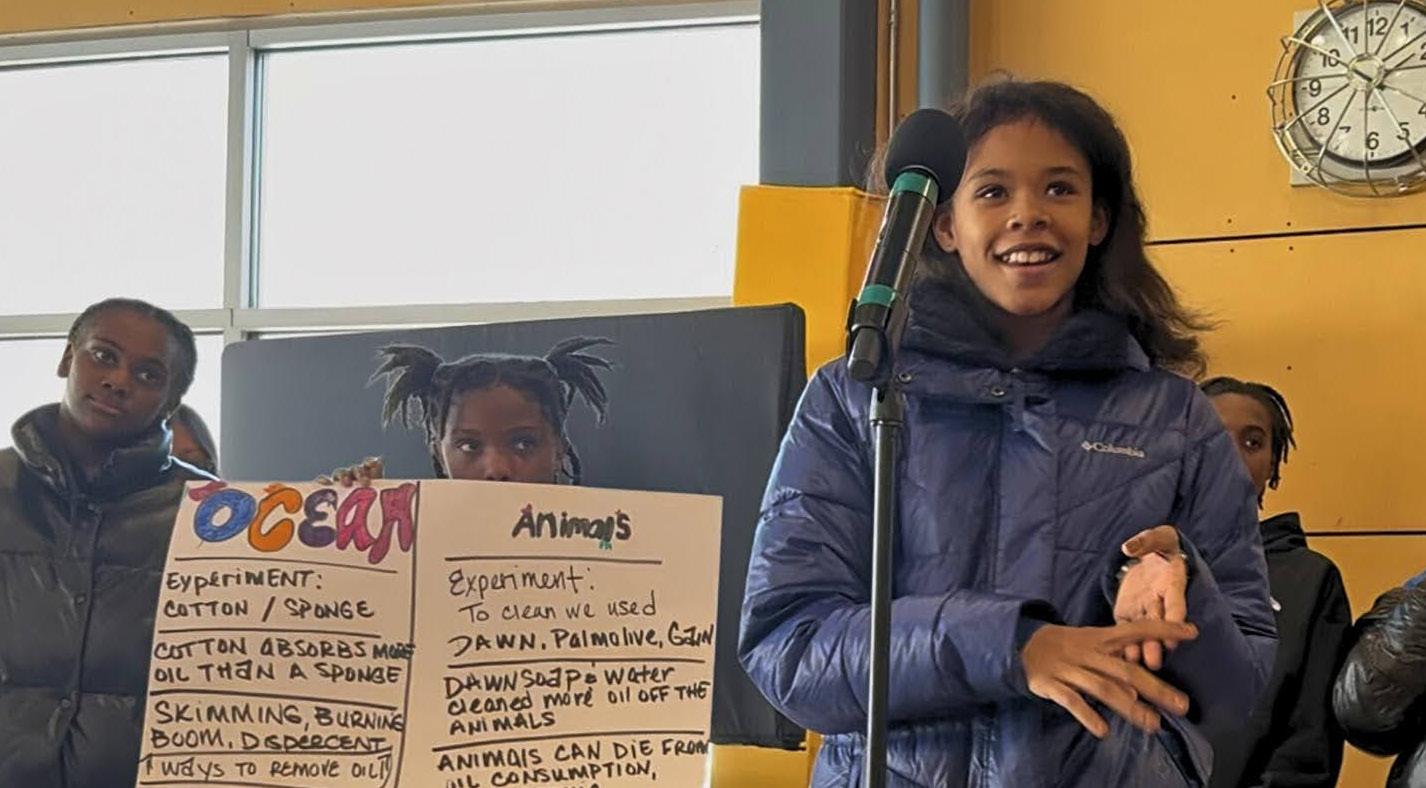 OCEAN
EXPERIMENT:
COTTON / SPONGE
COTTON ABSORBS MORE
OIL THAN A SPONGE
SKIMMING, BURNING
BOOM, DISPERCENT
WAYS TO REMOVE OIL
Animals
Experiment:
To clean we used
DAWN, Palmolive, GAIN
DAWN SOAP & Water
cleaned more oil OFF THE
ANIMALS
ANIMALS CAN DIE FROM
OIL CONSUMPTION,
Columbia
11 12 1
10 2
9
8 4
7 6 5